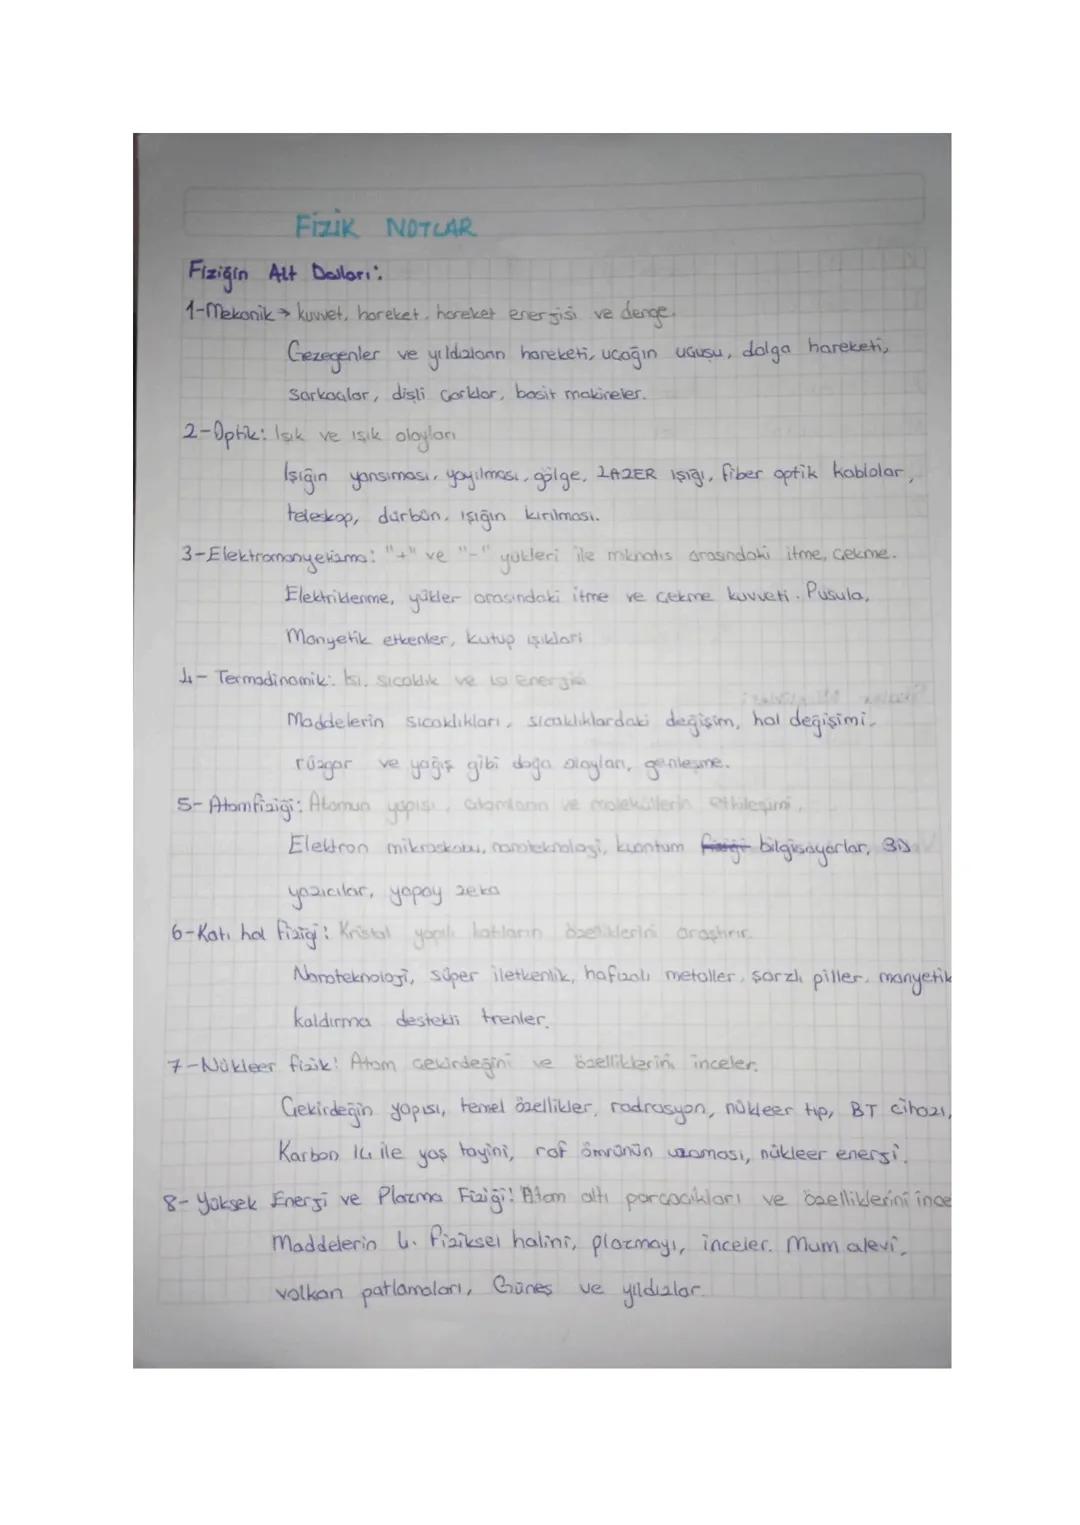 FİZİK NOTLAR
Fiziğin Alt Dalları:
1-Mekanik → kuvvet, hareket, hareket enerjisi ve denge.
Gezegenler ve yıldızların hareketi, uçağın uçuşu, dalga hareketi,
Sarkaçlar, dişli çarklar, basit makineler.
2-Optik: Işık ve ışık olayları
Işığın yansıması, yayılması, gölge, LAZER ışığı, fiber optik kablolar,
teleskop, dürbün, ışığın kırılması.
3-Elektromanyetizma: "+" ve "-" yükleri ile mıknatıs arasındaki itme, çekme.
Elektriklenme, yükler arasındaki itme ve çekme kuvveti. Pusula,
Manyetik etkenler, kutup ışıkları
4- Termodinamik: Isı, sıcaklık ve ısı enerjisi
Maddelerin sıcaklıkları, sıcaklıklardaki değişim, hal değişimi,
rüzgar ve yağış gibi doğa olayları, genleşme.
5- Atomfiziği: Atomun yapısı, atomların ve moleküllerin etkileşimi,
Elektron mikroskobu, nanoteknoloji, kuantum fiziği bilgisayarlar, 3D
yazıcılar, yapay zeka
6-Katı hal fiziği: Kristal yapılı katıların özelliklerini araştırır.
Nanoteknoloji, süper iletkenlik, hafızalı metaller, şarzlı piller, manyetik
kaldırma destekli trenler.
7-Nükleer fizik: Atom çekirdeğini ve özelliklerini inceler.
Çekirdeğin yapısı, temel özellikler, radrasyon, nükleer tıp, BT cihazı,
Karbon 14 ile yaş tayini, raf ömrünün uzaması, nükleer enerji.
8- Yüksek Enerji ve Plazma Fiziği: Atom altı parçacıkları ve özelliklerini ince
Maddelerin 4. fiziksel halini, plazmayı, inceler. Mum alevi,
volkan patlamaları, Güneş ve yıldızlar.